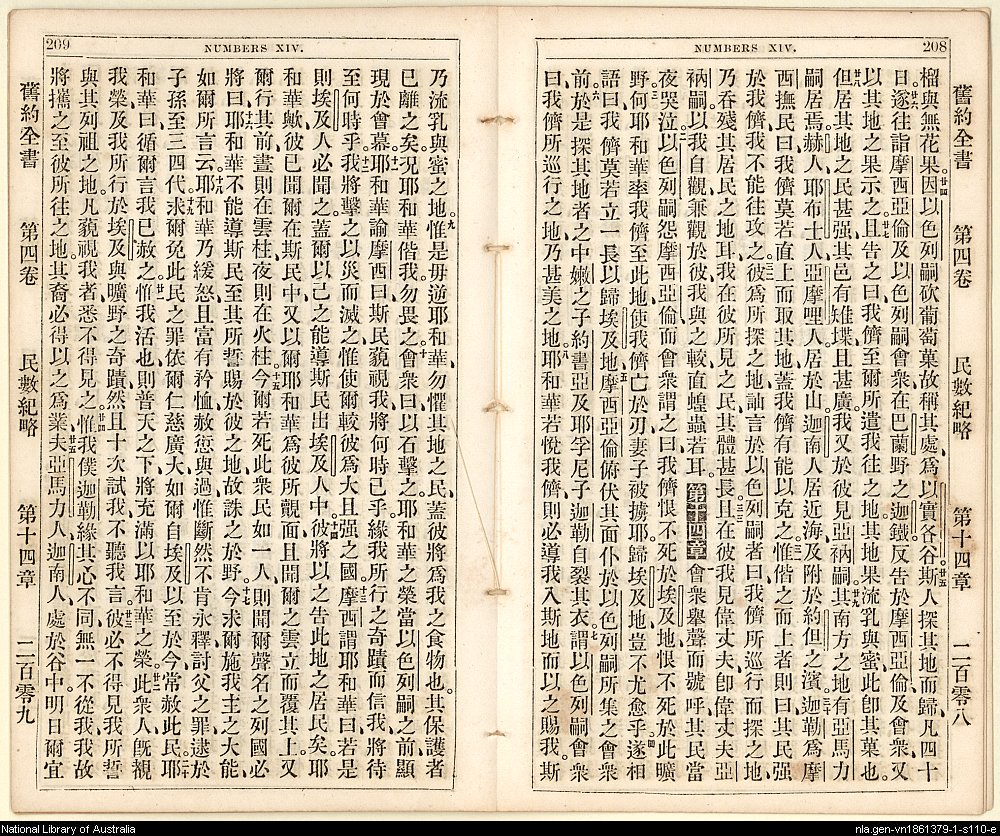 208
NUMBERS XIV.
舊約全書 第四卷 民數紀略 第十四章 二百零八
榴與無花果。廿四因以色列嗣砍葡萄菓故稱其處、為以實各谷。廿五斯人探其地而歸、凡四十
日。廿六遂往詣摩西亞倫及以色列嗣會衆在巴蘭野之迦鐵、反告於摩西亞倫及會衆、又
以其地之果示之。廿七且告之曰我儕至爾所遣我往之地、其地果流乳與蜜、此卽其菓也。
廿八但居其地之民甚强其邑有雉堞且甚廣、我又於彼見亞衲嗣。廿九其南方之地有亞馬力
嗣居焉、赫人耶布士人亞摩哩人居於山、迦南人居近海及附於約但之濱。三十迦勒爲摩
西撫民曰我儕莫若直上而取其地蓋我儕有能以克之。三一惟偕之而上者則曰其民强
於我儕我不能往攻之。三二彼爲所探之地訕言於以色列嗣者曰我儕所巡行而探之地
乃吞殘其居民之地耳、我在彼所見之民、其體甚長。三三且在彼我見偉丈夫卽偉丈夫亞
衲嗣。以我自觀兼觀於彼、我與之較、直蝗蟲若耳。第十四章 一會衆舉聲而號呼、其民當
夜哭泣。二以色列嗣怨摩西亞倫而會衆謂之曰我儕恨不死於埃及地、恨不死於此曠
野。三何耶和華率我儕至此地、使我儕亡於刃、妻子被擄耶、歸埃及地豈不尤愈乎。四遂相
語曰我儕莫若立一長以歸埃及地。五摩西亞倫俯伏其面仆於以色列嗣所集之會衆
前。六於是探其地者之中嫩之子約書亞及耶孚尼子迦勒自裂其衣。七謂以色列嗣會衆
曰、我儕所巡行之地、乃甚美之地。八耶和華若悅我儕、則必導我入斯地而以之賜我、斯
209
NUMBERS XIV.
乃流乳與蜜之地。九惟是毋逆耶和華、勿懼其地之民、蓋彼將爲我之食物也。其保護者
已離之矣、況耶和華偕我、勿畏之。十會衆曰以石擊之、耶和華之榮當以色列嗣之前顯
現於會幕。十一耶和華諭摩西曰斯民藐視我將何時已乎緣我所行之奇蹟而信我、將待
至何時乎。十二我將擊之以災而滅之惟使爾較彼爲大且强之國。十三摩西謂耶和華曰若是
則埃及人必聞之。蓋爾以己之能導斯民出埃及人中、十四彼將以之告此地之居民矣。耶
和華歟彼已聞爾在斯民中、又以爾耶和華爲彼所覿面且聞爾之雲立而覆其上。又
爾行其前、晝則在雲柱、夜則在火柱。十五今爾若死此衆民如一人、則聞爾聲名之列國必
將曰、十六耶和華不能導斯民至其所誓賜於彼之地、故誅之於野。十七今求爾施我主之大能
如爾所言云。十八耶和華乃緩怒且富有矜恤、赦愆與過惟斷然不肯永釋、討父之罪逮於
子孫至三四代。十九求爾免此民之罪依爾仁慈廣大、如爾自埃及以至於今常赦此民。二十耶
和華曰循爾言我已赦之。廿一惟我活也、則普天之下、將充滿以耶和華之榮。廿二此衆人旣視
我榮及我所行於埃及與曠野之奇蹟、然且十次試我、不聽我言。廿三彼必不得見我所誓
與其列祖之地、凡藐視我者悉不得見之。廿四惟我僕迦勒緣其心不同無一不從我、我故
將攜之至彼所往之地、其裔必得以之爲業。廿五夫亞馬力人迦南人、處於谷中、明日爾宜
舊約全書 第四卷 民數紀略 第十四章 二百零九
National Library of Australia
nla.gen-vn1861379-1-s110-e